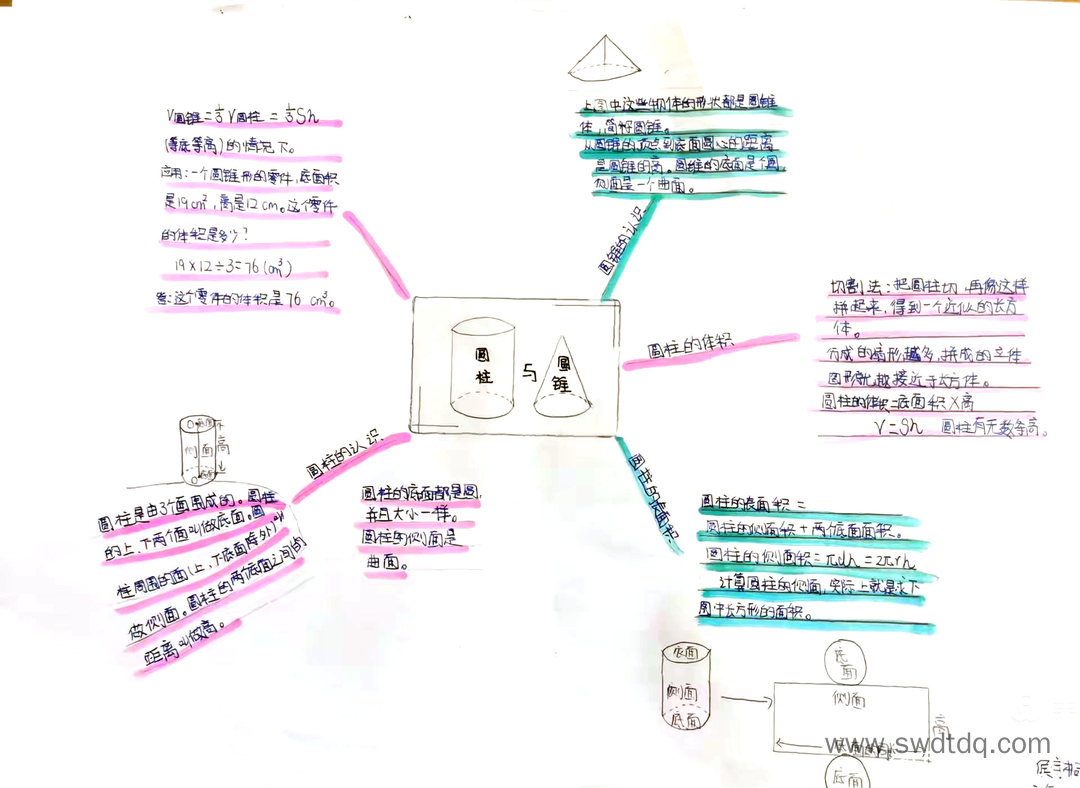 V圆锥=⅓V圆柱=⅓Sh
(等底等高)的情况下。
应用:一个圆锥形的零件,底面积
是19cm²,高是12cm。这个零件
的体积是多少?
19×12÷3=76(cm³)
答:这个零件的体积是76 cm³。
上图中这些物体的形状都是圆锥
体,简称圆锥。
从圆锥的顶点到底面圆心的距离
是圆锥的高。圆锥的底面是个圆,
侧面是一个曲面。
圆锥的认识
圆柱
与
圆锥
圆柱的体积
切割法:把圆柱切,再像这样
拼起来,得到一个近似的长方
体。
成的扇形越多,拼成的立体
图形就越接近于长方体。
圆柱的体积=底面积×高
V=Sh 圆柱有无数条高。
圆柱的认识
底面
侧面
高
圆柱是由3个面围成的。圆柱
的上、下两个面叫做底面。圆
柱周围的面(上、下底面除外)叫
做侧面。圆柱的两个底面之间的
距离叫做高。
圆柱的底面都是圆,
并且大小一样。
圆柱的侧面是
曲面。
圆柱的表面积
圆柱的表面积=
圆柱的侧面积+两个底面面积。
圆柱的侧面积=πdh=2πrh
计算圆柱的侧面,实际上就是求下
图中长方形的面积。
底面
侧面
底面
底面
侧面
高
底面
www.swdtdq.com